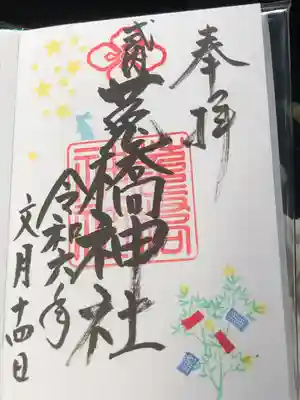 奉拝
橋神社
令和六年
文月十四日